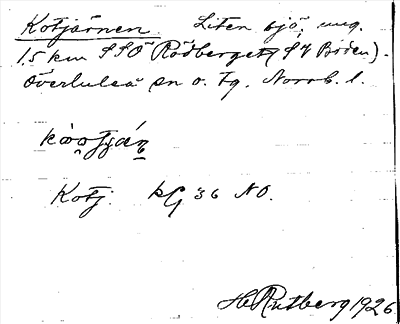 Kotjärnen. Liten sjö, ung.
1.5 km SSÖ Rödberget (SV Boden).
Överluleå sn o. tg. Norrb. l.
Kotj. kG 36 NO.
H Rutberg 1926.